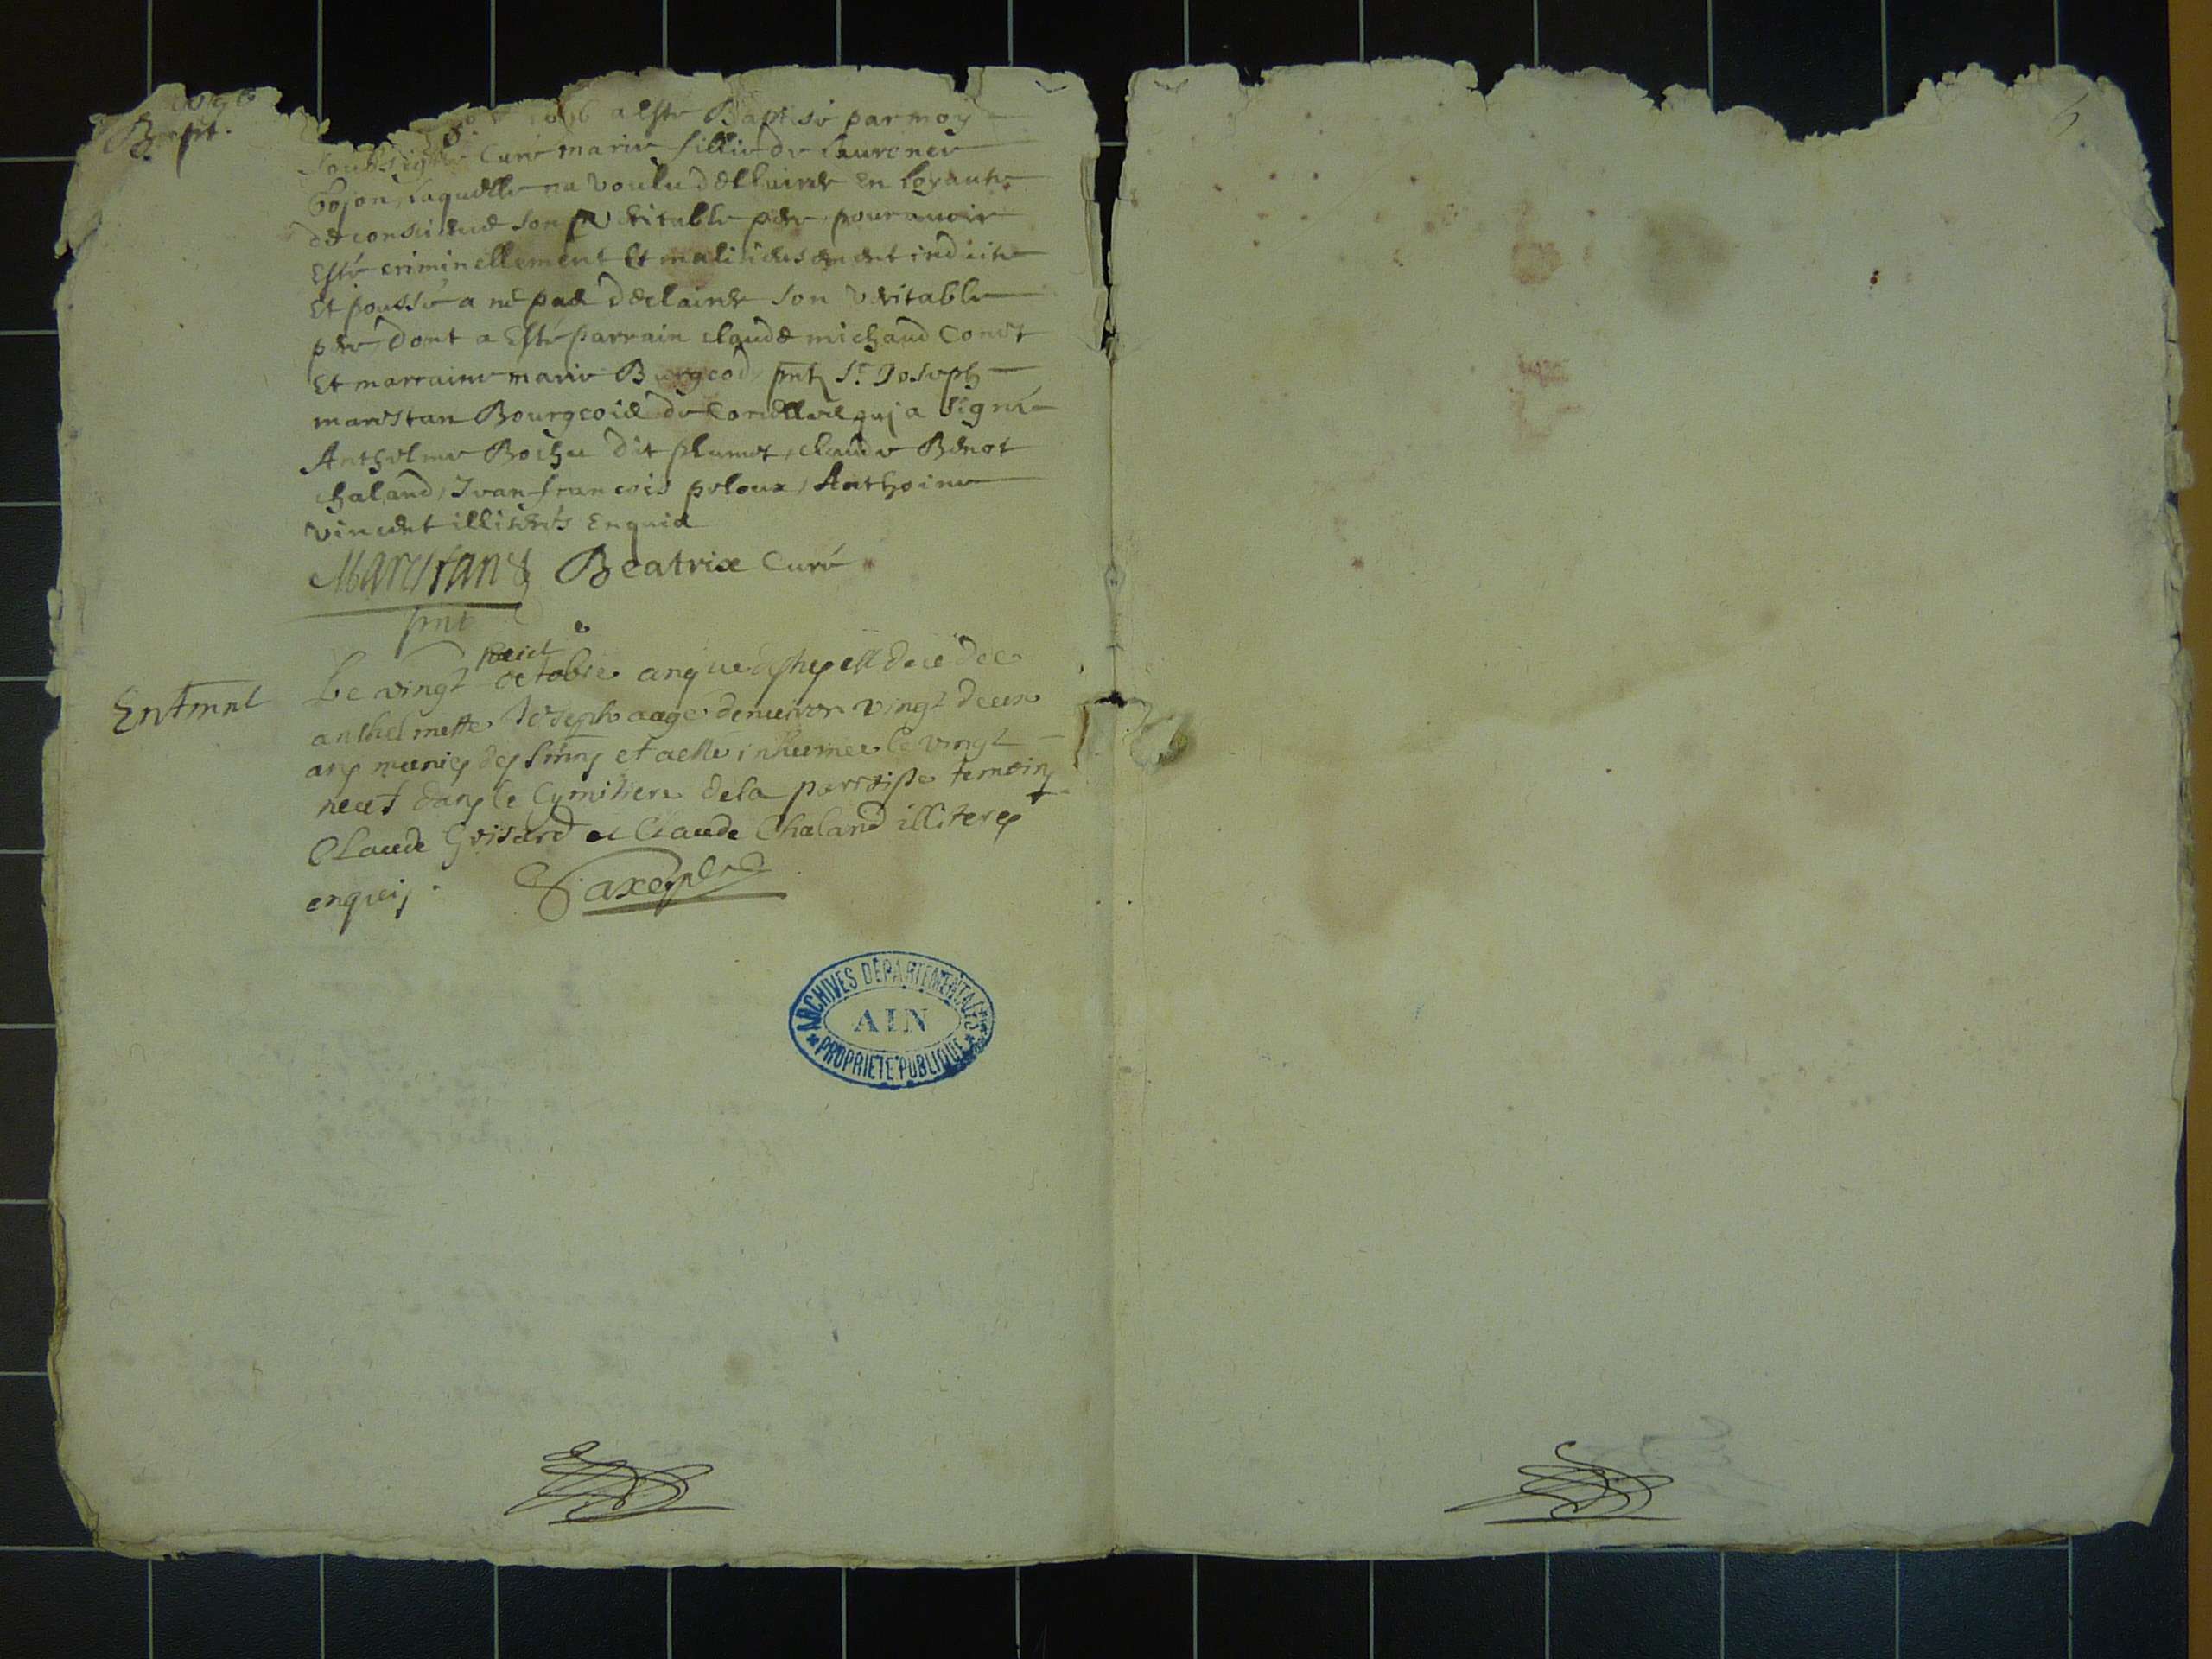 Bapt.
8bre 1696 a esté Baptisé par moy
soubsigné Curé marie fillie de laurence
Gojon, laquelle na voulu desclairer en loyauté
de conscience son veritable pere pour auoir
Esté criminellement Et malicieusement induite
Et poussé a ne pas declairer son veritable
pere, dont a Esté parrain claude michaud Conet
Et marraine marie Burgeod, pnts Sr Joseph
marestan Bourgeois de Cordellve qui a signé
Anthelme Bochu dit plumet, claude Benot
chaland, Jean francois peloux, Anthoine
vincent illiterés Enquis
Marestan & Beatrix Curé
pnt
Entmnt
Le vingt huict octobre
anthelmette Joseph aage denuiron vingt deux
ans munies des Smns et a esté inhumee le vingt
neuf dans le Cymitiere de la parroisse temoins
Claude Goisard et Claude Chaland illiteres
enquis.
ARCHIVES DÉPARTEMENTALES
AIN
PROPRIÉTÉ PUBLIQUE